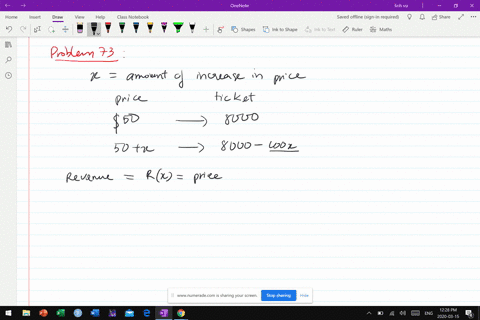 OneNote
Saved offline (sign in required)
Home Insert Draw View Help Class Notebook
Shapes Ink to Shape Ink to Text Ruler Maths
Problem 73 :
x = amount of increase in price
price ticket
$50 → 8000
50+x → 8000 - 100x
Revenue = R(x) = price
www.numerade.com is sharing your screen. Stop sharing Hide
ENG
12:28 PM
2020-03-15